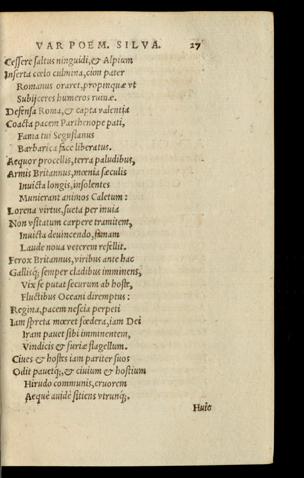 VAR POEM. SILVA. 27
Cessere saltus ninguidi, & Alpium
Inserta cœlo culmina, cum pater
Romanus oraret, propinquæ vt
Subijceres humeros ruinæ.
Defensa Roma, & capta valentia
Coacta pacem Parthenope pati,
Fama tui Segustanus
Barbarica face liberatus.
Aequor procellis, terra paludibus,
Armis Britannus, mœnia sæculis
Inuicta longis, insolentes
Munierant animos Caletum:
Lorena virtus, sueta per inuia
Non vsitatum carpere tramitem,
Inuicta deuincendo, famam
Laude noua veterem refellit.
Ferox Britannus, viribus ante hac
Gallisq; semper cladibus imminens,
Vix se putat securum ab hoste,
Fluctibus Oceani diremptus:
Regina, pacem nescia perpeti
Iam spreta mœret fœdera, iam Dei
Iram pauet sibi imminentem,
Vindicis & furiæ flagellum.
Ciues & hostes iam pariter suos
Odit pauetq;, & ciuium & hostium
Hirudo communis, cruorem
Aequè auidè sitiens vtrunq;.
Huic